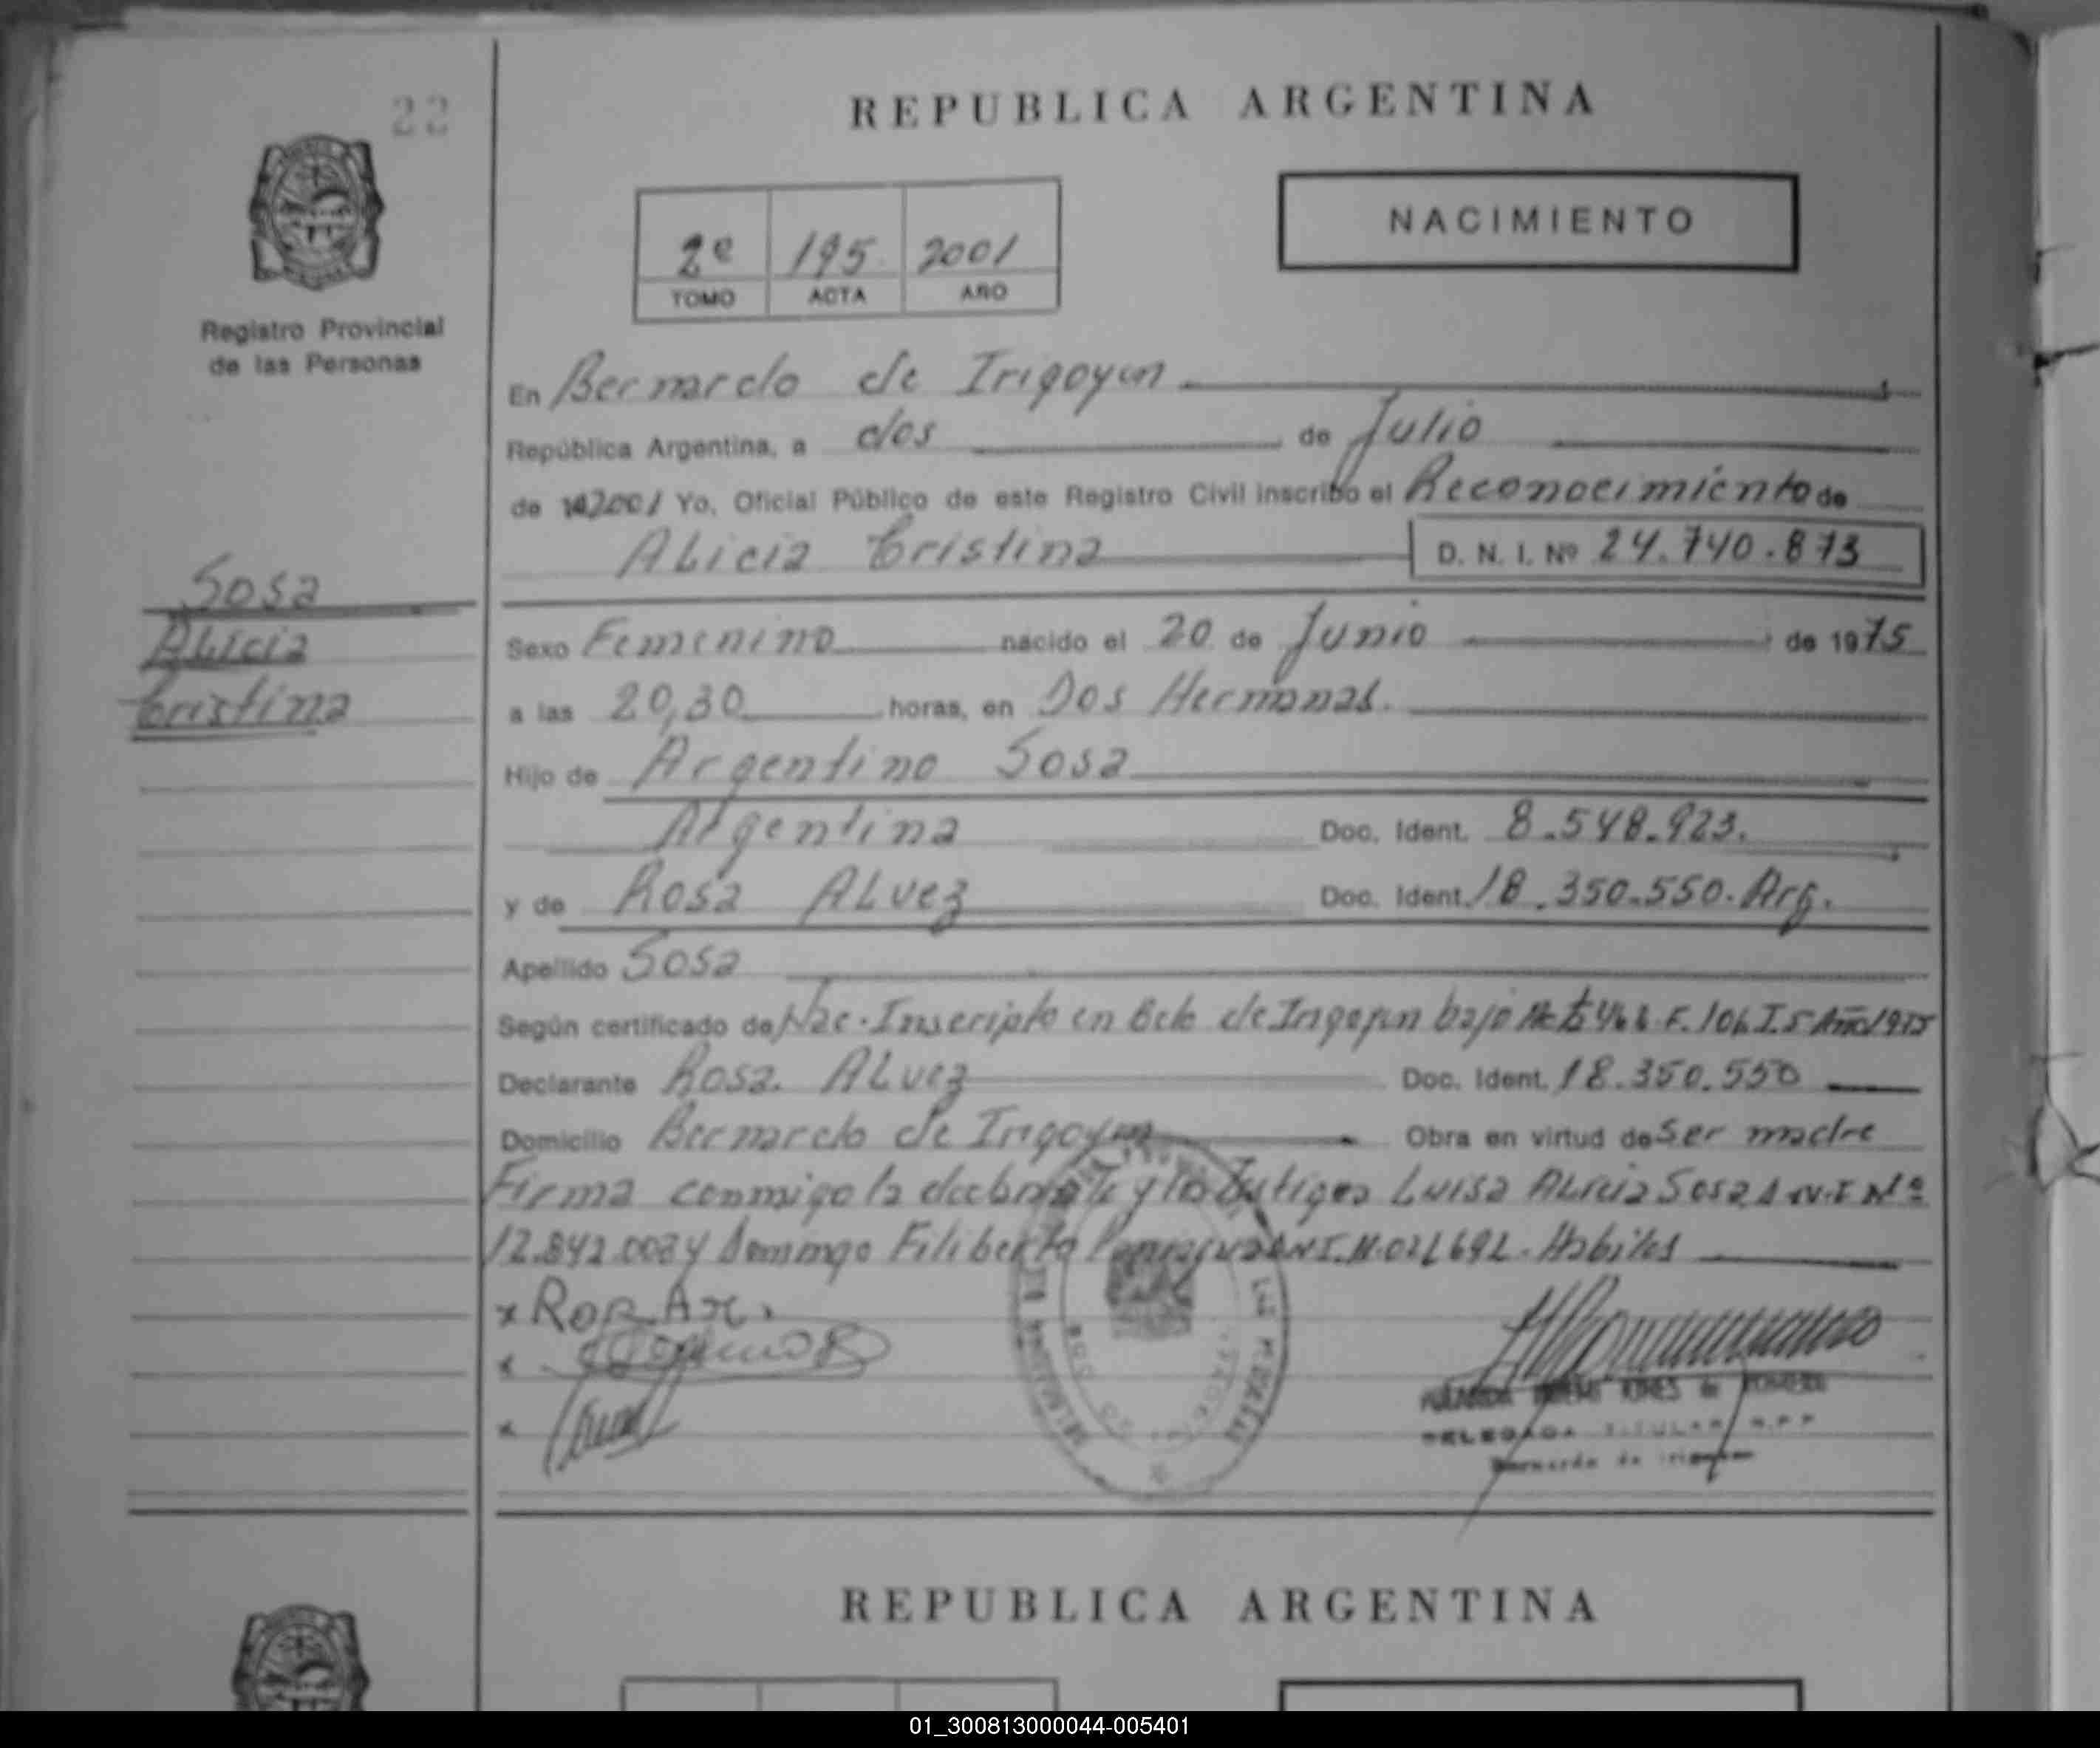 22
REPUBLICA ARGENTINA
NACIMIENTO
2º 195 2001
TOMO ACTA AÑO
Registro Provincial
de las Personas
En Bernardo de Irigoyen
República Argentina, a dos de Julio
de 2001 Yo, Oficial Público de este Registro Civil inscribo el Reconocimiento de
Alicia Cristina D. N. I. Nº 24.740.873
Sosa
Alicia
Cristina
Sexo Femenino nacido el 20 de Junio de 1975
a las 20,30 horas, en Dos Hermanas.
Hijo de Argentino Sosa
Argentina Doc. Ident. 8.548.923.
y de Rosa Alvez Doc. Ident. 18.350.550. Arg.
Apellido Sosa
Según certificado de Nac. Inscripto en Bdo de Irigoyen bajo Acta F. 106 Año 1975
Declarante Rosa Alvez Doc. Ident. 18.350.550
Domicilio Bernardo de Irigoyen Obra en virtud de Ser madre
Firma conmigo la declarante y los testigos Luisa Alicia Sosa D.N.I Nº
12.842.002 y Domingo Filiberto D.N.I. Habiles
DELEGADA TITULAR R.P.P
Bernardo de Irigoyen
REPUBLICA ARGENTINA
01_300813000044-005401